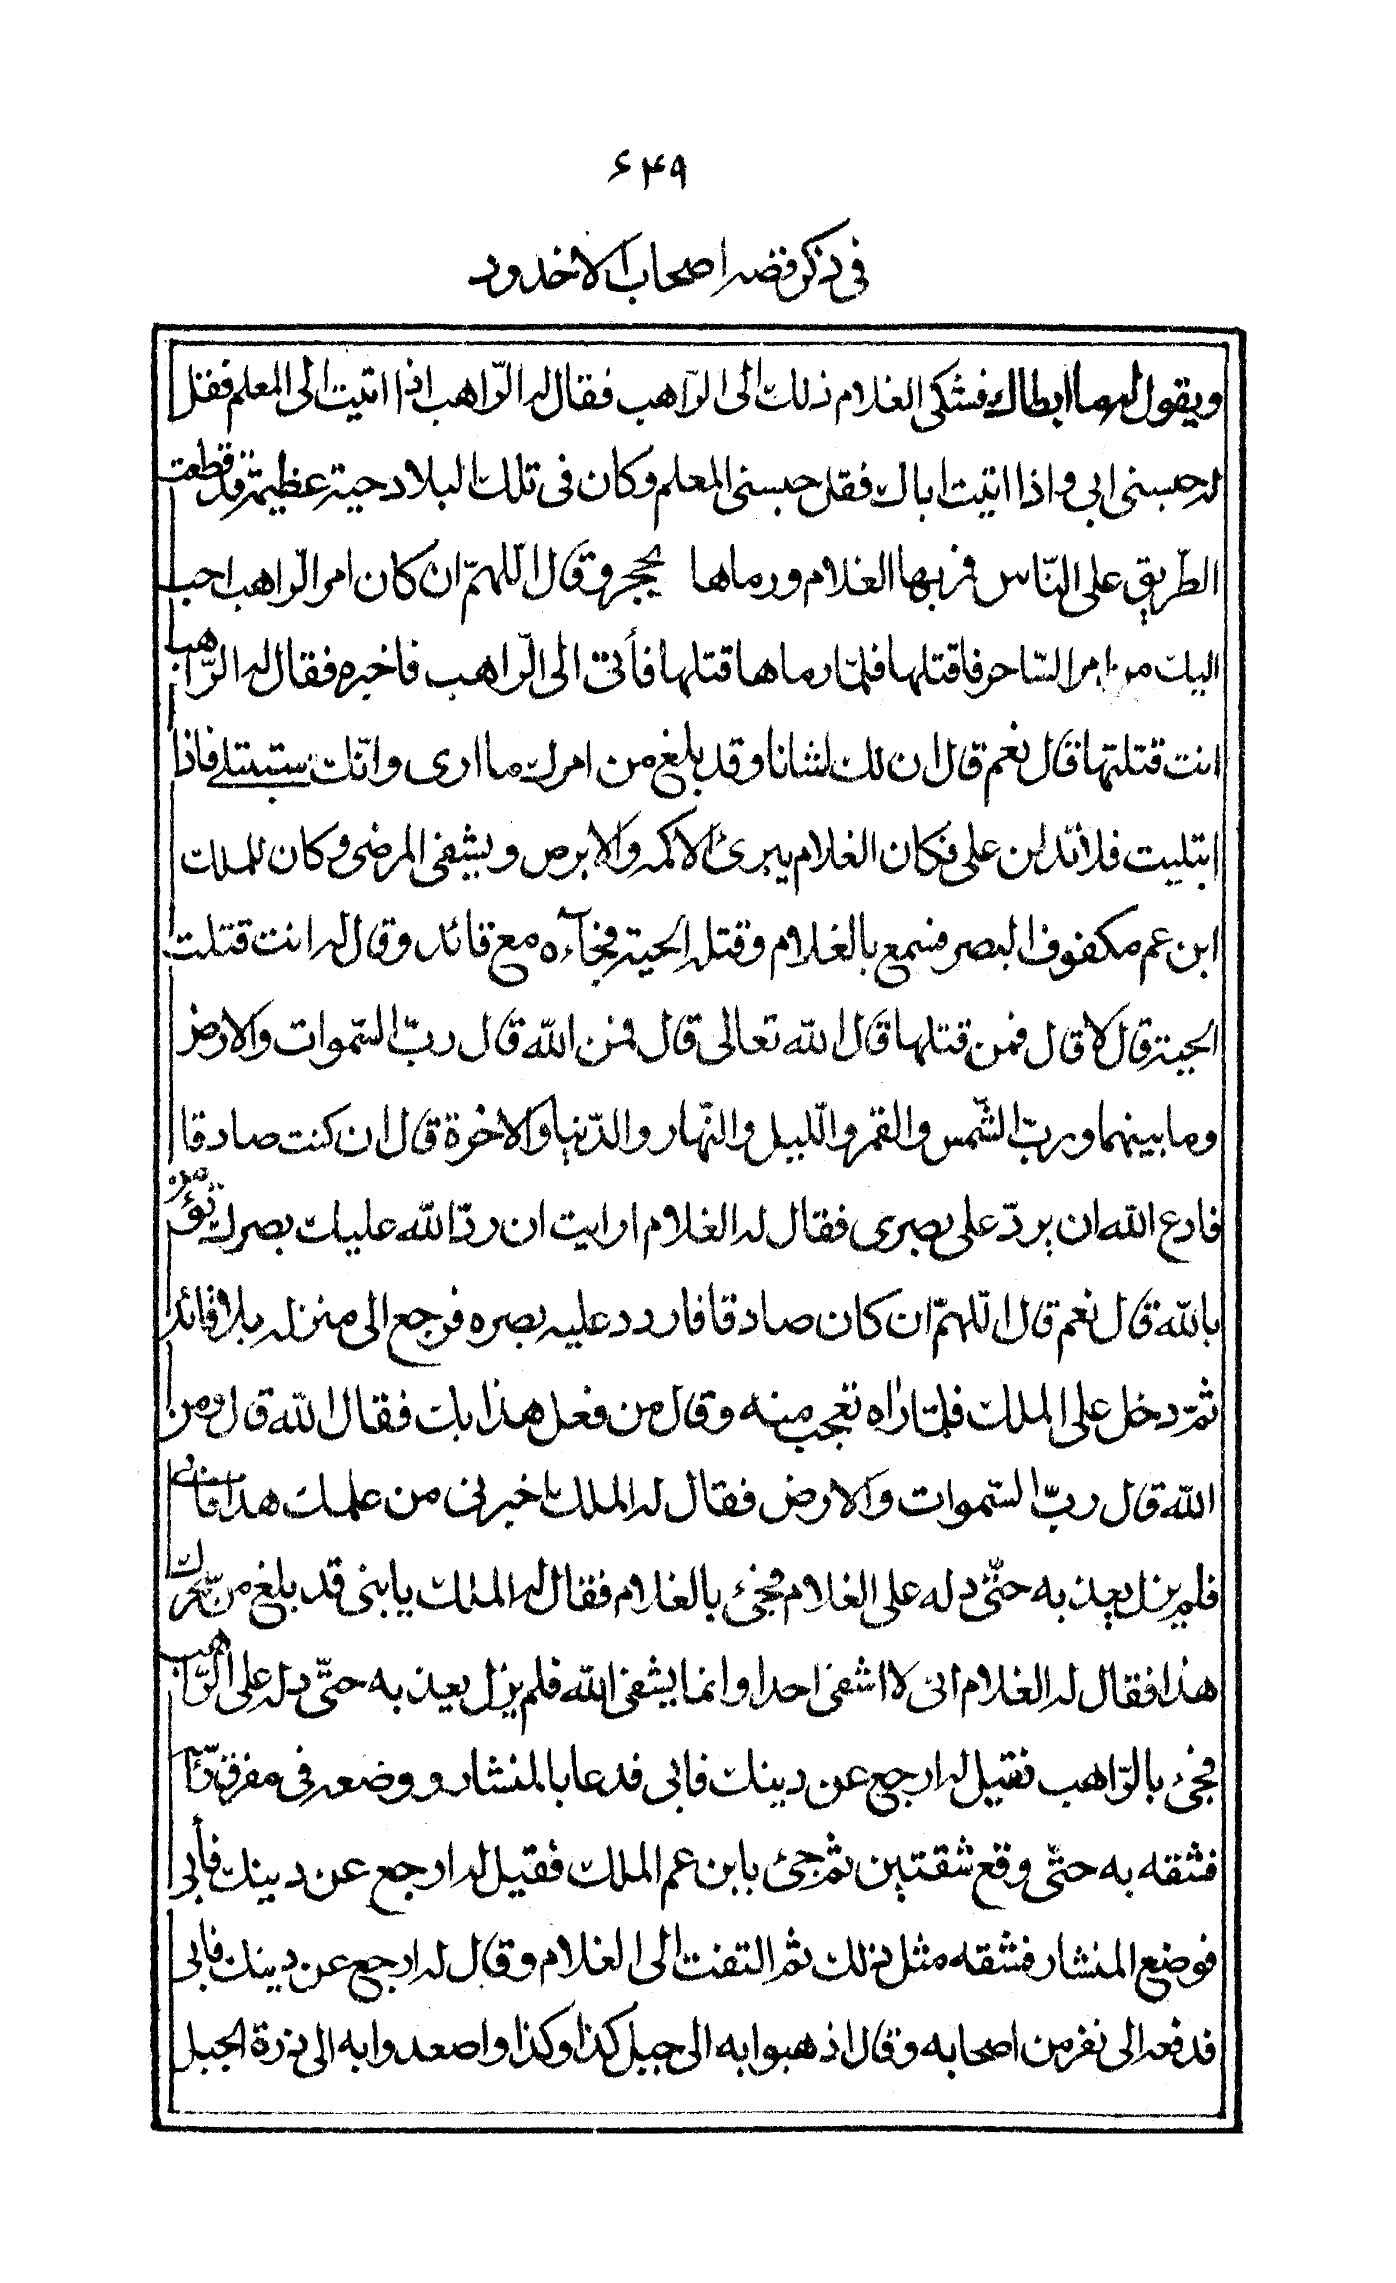 ۶۴۹
فی ذکر قصه اصحاب الاخدود
ویقول له ما ابطاك فشکی الغلام ذلك الی الرّاهب فقال له الرّاهب اذا اتیت الی المعلم فقل
له حبسنی ابی واذا اتیت اباك فقل حبسنی المعلم وکان فی تلك البلاد حیة عظیمة قد قطعت
الطّریق علی النّاس فمر بها الغلام ورماها بحجر وقال اللّهمّ ان کان امر الرّاهب احب
الیك من امر السّاحر فاقتلها فلمّا رماها قتلها فأتی الی الرّاهب فاخبره فقال له الرّاهب
انت قتلتها قال نعم قال ان لك لشانا وقد بلغ من امرك ما اری وانّك ستبتلی فاذا
ابتلیت فلا تدلن علی فکان الغلام یبرئ الاکمه والابرص ویشفی المرضی وکان للملك
ابن عم مکفوف البصر فسمع بالغلام وقتله الحیة فجآءه مع قائد وقال له انت قتلت
الحیة قال لا قال فمن قتلها قال الله تعالی قال فمن الله قال ربّ السّموات والارض
وما بینهما وربّ الشّمس والقمر واللّیل والنّهار والدّنیا والاخرة قال ان کنت صادقا
فادع الله ان یردّ علی بصری فقال له الغلام ارایت ان ردّ الله علیك بصرك تؤمن
بالله قال نعم قال اللّهمّ ان کان صادقا فاردد علیه بصره فرجع الی منزله بلا قائد
ثمّ دخل علی الملك فلمّا راه تعجب منه وقال من فعل هذا بك فقال الله قال ومن
الله قال ربّ السّموات والارض فقال له الملك اخبرنی من علمك هذا فابی
فلم یزل یعذبه حتّی دله علی الغلام فجئ بالغلام فقال له الملك یا بنی قد بلغ من سحرك
هذا فقال له الغلام انی لا اشفی احدا وانما یشفی الله فلم یزل یعذبه حتّی دله علی الرّاهب
فجئ بالرّاهب فقیل له ارجع عن دینك فابی فدعا بالمنشار ووضعه فی مفرق رأسه
فشقه به حتّی وقع شقتین ثم جئ بابن عم الملك فقیل له ارجع عن دینك فأبی
فوضع المنشار فشقه مثل ذلك ثم التفت الی الغلام وقال له ارجع عن دینك فابی
فدفعه الی نفر من اصحابه وقال اذهبوا به الی جبل کذا وکذا واصعدوا به الی ذروة الجبل